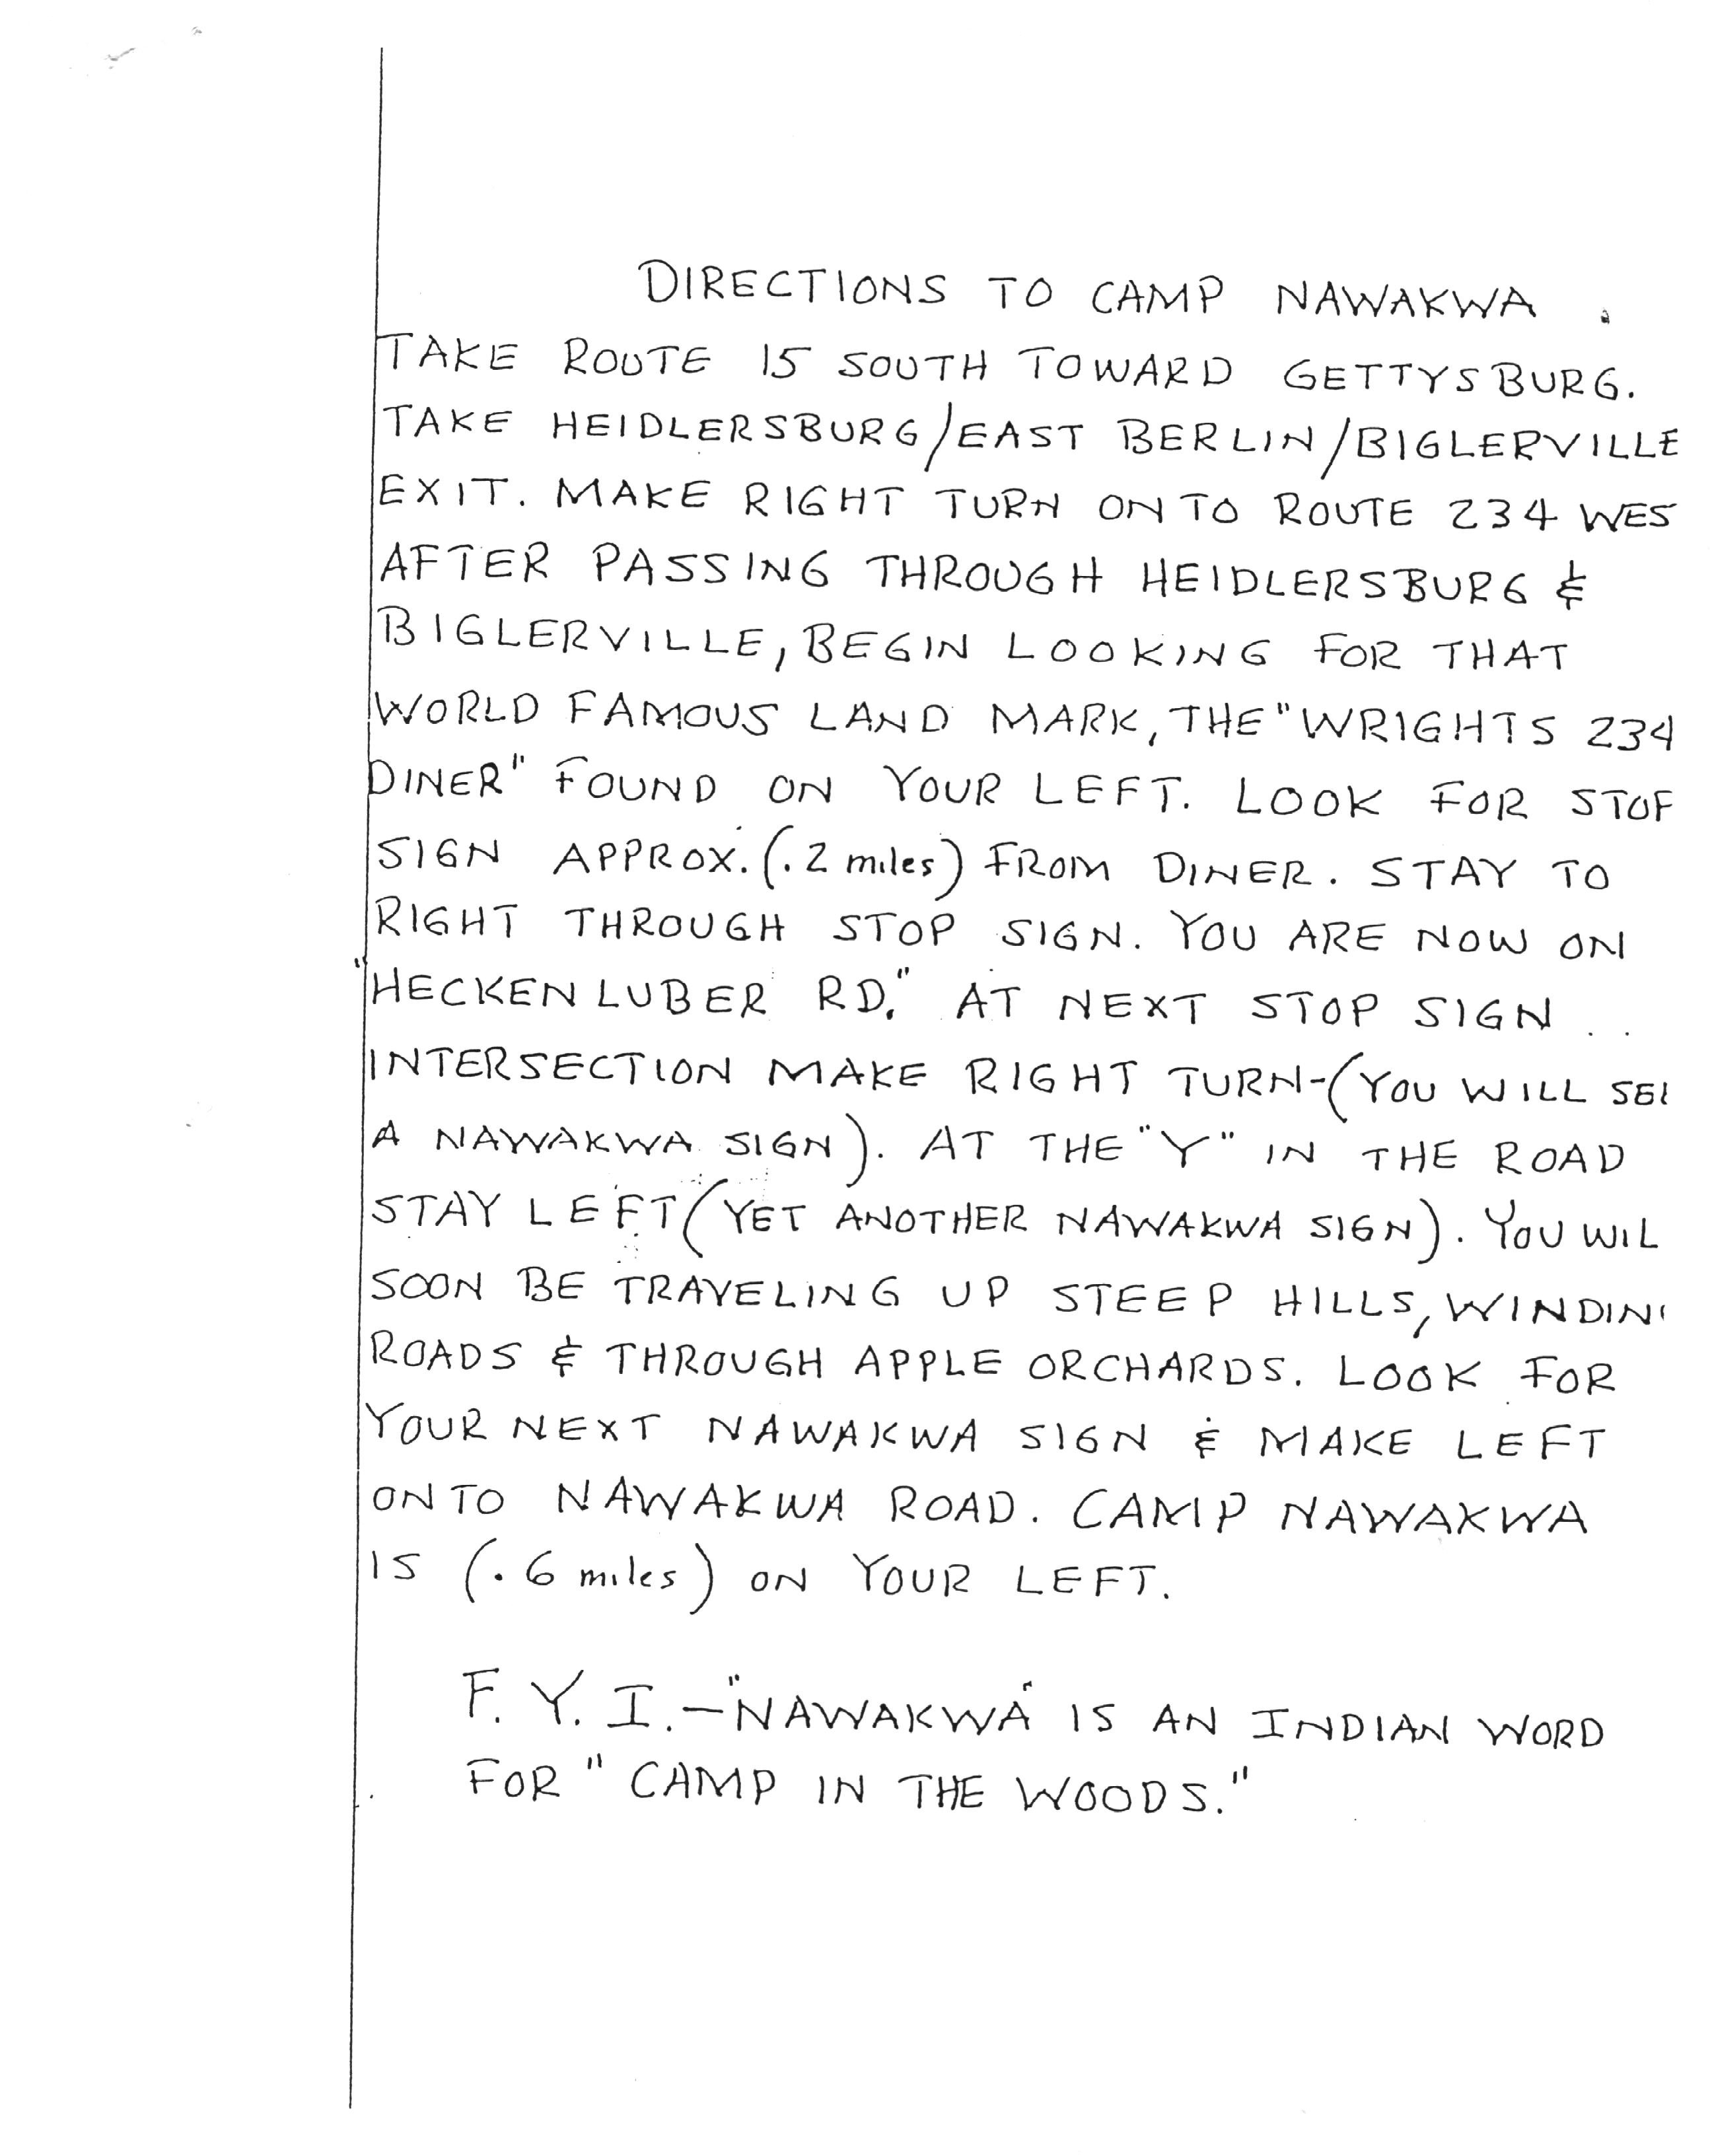 DIRECTIONS TO CAMP NAWAKWA
TAKE ROUTE 15 SOUTH TOWARD GETTYSBURG.
TAKE HEIDLERSBURG/EAST BERLIN/BIGLERVILLE
EXIT. MAKE RIGHT TURN ONTO ROUTE 234 WES
AFTER PASSING THROUGH HEIDLERSBURG &
BIGLERVILLE, BEGIN LOOKING FOR THAT
WORLD FAMOUS LAND MARK, THE "WRIGHTS 234
DINER" FOUND ON YOUR LEFT. LOOK FOR STOP
SIGN APPROX. (.2 miles) FROM DINER. STAY TO
RIGHT THROUGH STOP SIGN. YOU ARE NOW ON
"HECKENLUBER RD." AT NEXT STOP SIGN
INTERSECTION MAKE RIGHT TURN-(YOU WILL SEE
A NAWAKWA SIGN). AT THE "Y" IN THE ROAD
STAY LEFT (YET ANOTHER NAWAKWA SIGN). YOU WIL
SOON BE TRAVELING UP STEEP HILLS, WINDIN
ROADS & THROUGH APPLE ORCHARDS. LOOK FOR
YOUR NEXT NAWAKWA SIGN & MAKE LEFT
ONTO NAWAKWA ROAD. CAMP NAWAKWA
IS (.6 miles) ON YOUR LEFT.
F.Y.I.-"NAWAKWA" IS AN INDIAN WORD
FOR "CAMP IN THE WOODS."